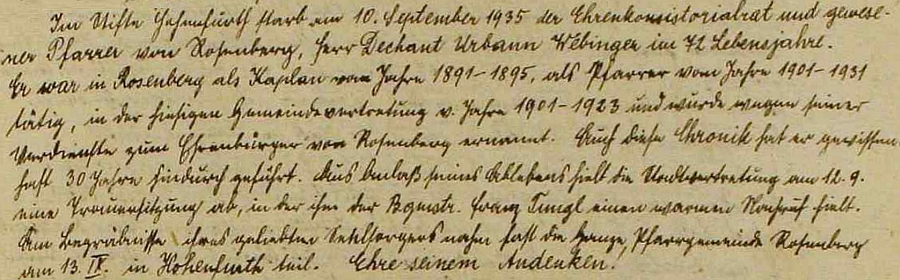 Im Stifte Hohenfurth starb am 10. September 1935 der Ehrenkonsistorialrat und gewese-
ner Pfarrer von Rosenberg, Herr Dechant Urbann Webinger im 72 Lebensjahre.
Er war in Rosenberg als Kaplan vom Jahre 1891-1895, als Pfarrer vom Jahre 1901-1931
tätig, in der hiesigen Gemeindevertretung v. Jahre 1901-1923 und wurde wegen seiner
Verdienste zum Ehrenbürger von Rosenberg ernannt. Auch diese Chronik hat er gewissen-
haft 30 Jahre hindurch geführt. Aus Anlaß seines Ablebens hielt die Stadtvertretung am 12. 9.
eine Trauersitzung ab, in der ihm der Bgmstr. Franz Tungl einen warmen Nachruf hielt.
Am Begräbnisse ihres geliebten Seelsorgers nahm fast die ganze Pfarrgemeinde Rosenberg
am 13. IX. in Hohenfurth teil. Ehre seinem Andenken.